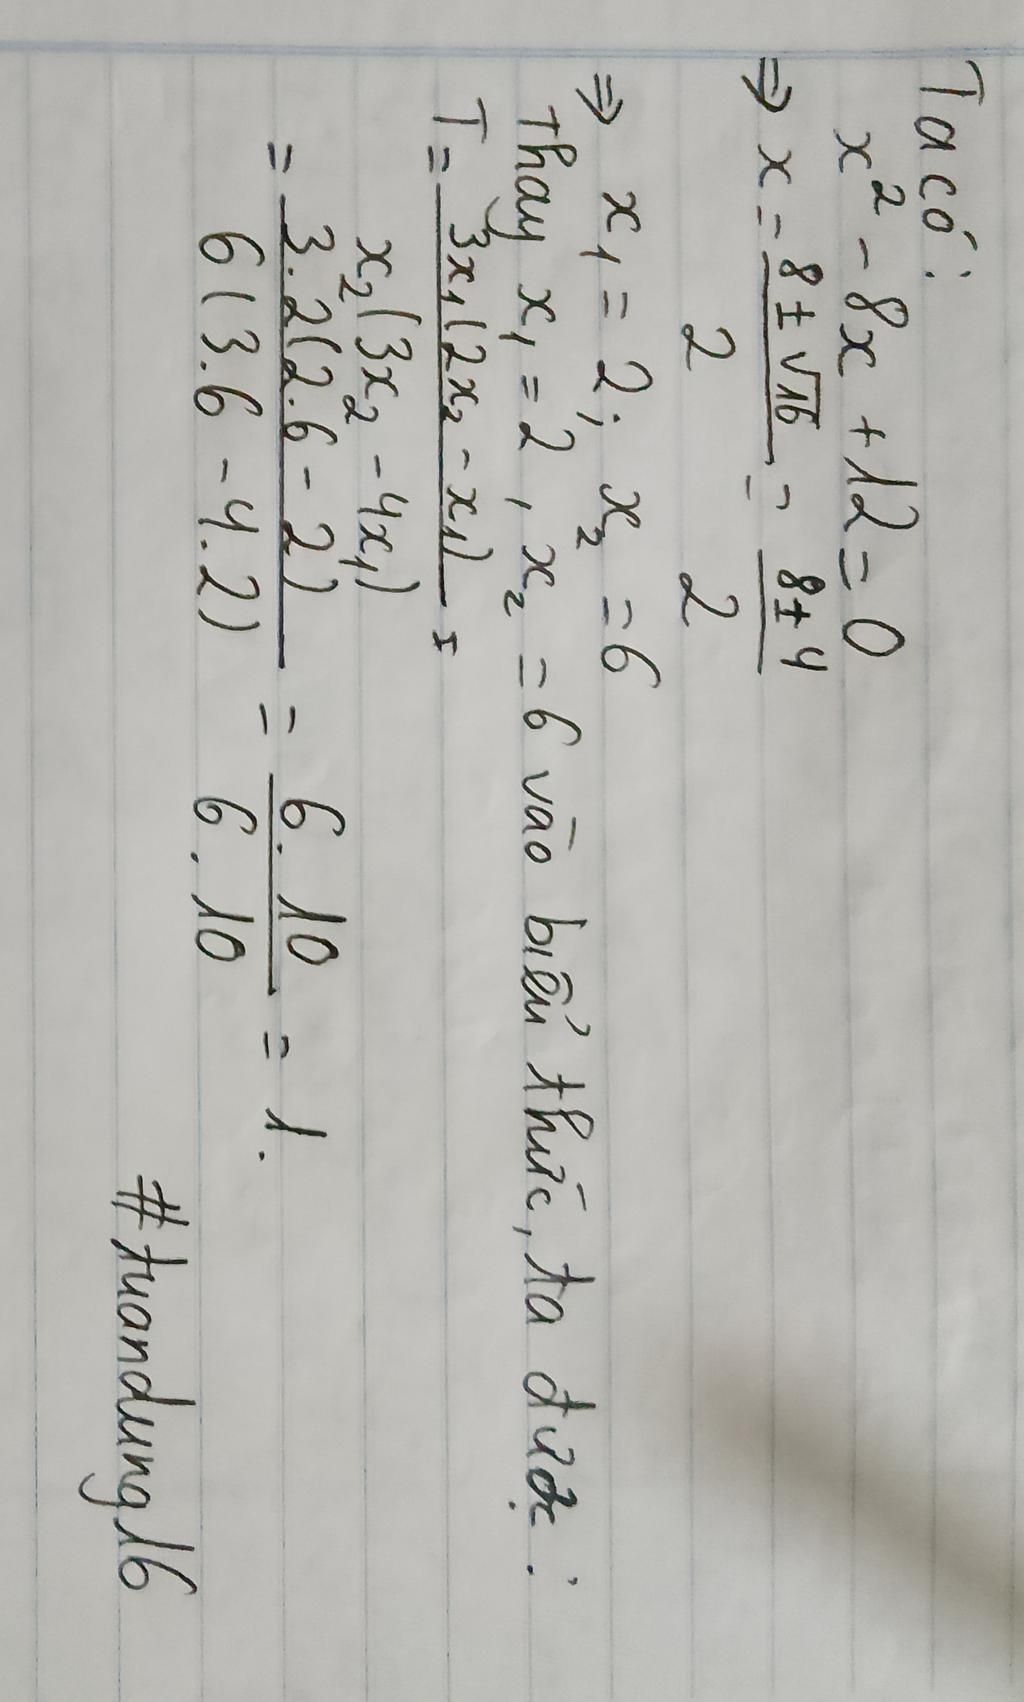 Ta có:
x² - 8x + 12 = 0
⇒ x = (8 ± √16)/2 = (8 ± 4)/2
⇒ x₁ = 2; x₂ = 6
Thay x₁ = 2, x₂ = 6 vào biểu thức, ta được:
T = 3x₁(2x₂ - x₁)/x₂(3x₂ - 4x₁)
= 3.2(2.6 - 2)/6(3.6 - 4.2) = 6.10/6.10 = 1.
#tuandung16